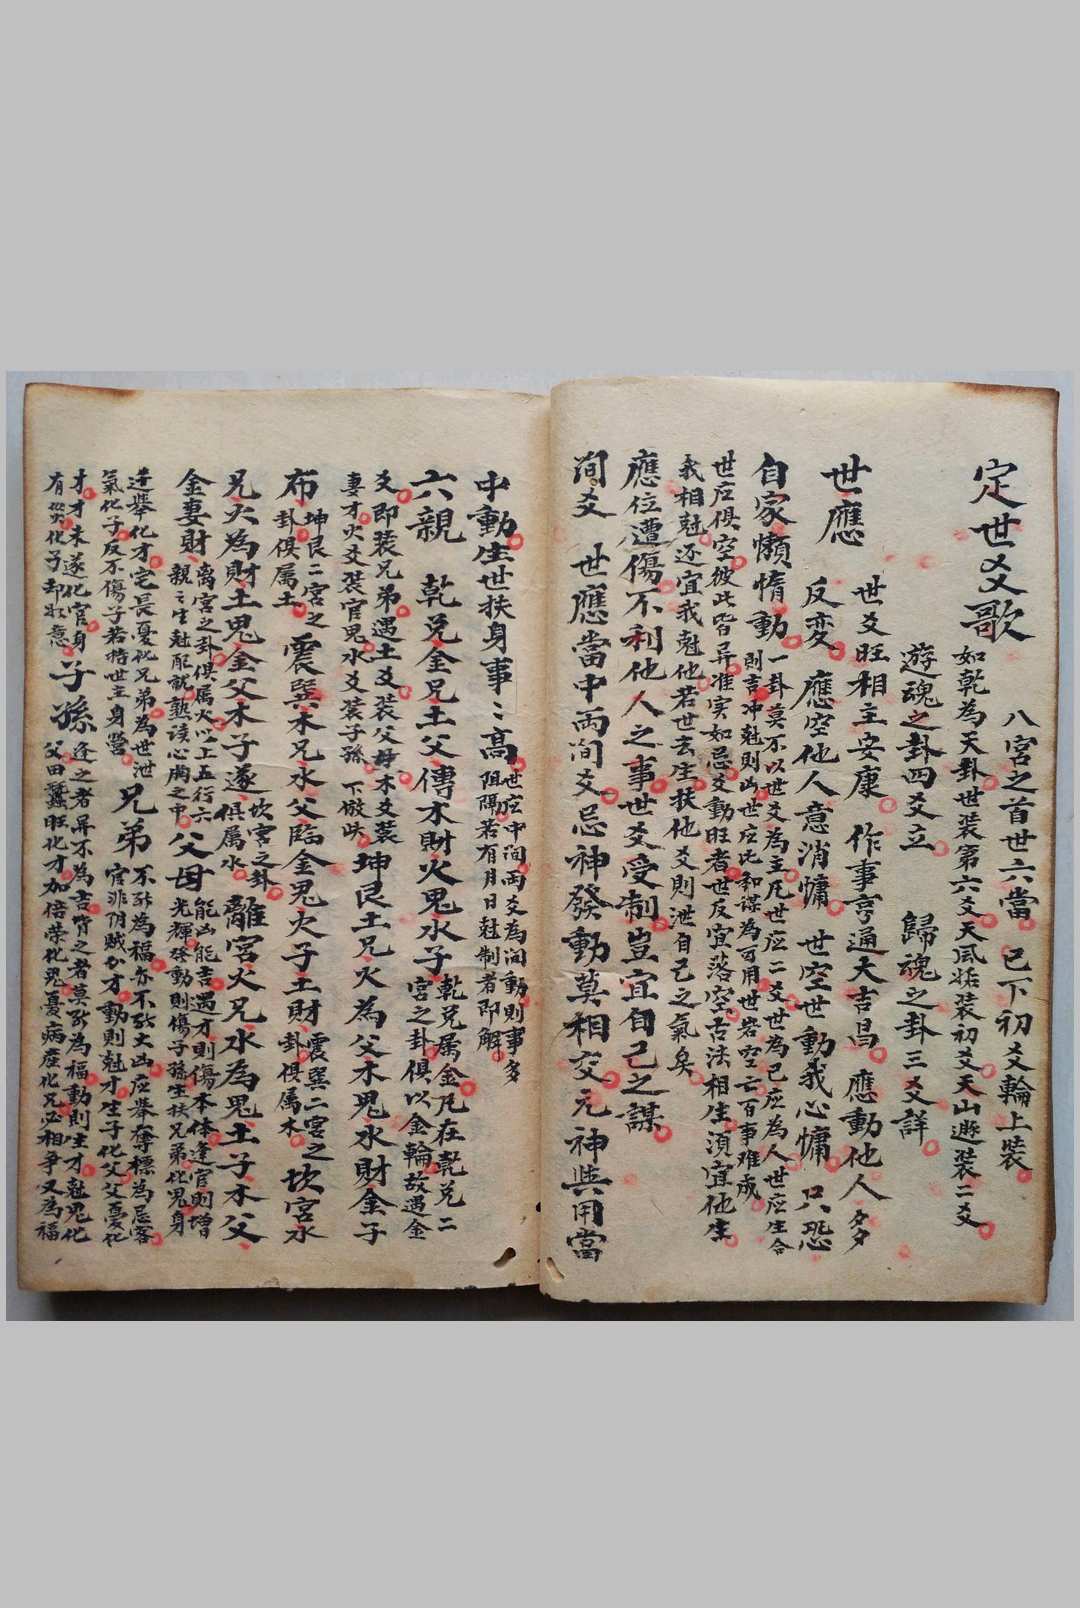 定世爻歌
八宮之首世六當 已下初爻輪上裝
如乾為天卦世裝第六爻天風姤裝初爻天山遯裝二爻
遊魂之卦四爻立 歸魂之卦三爻詳
世應 世爻旺相主安康 作事亨通大吉昌 應動他人多
反变 應空他人意消慵 世空世動我心慵 只恐
自家懶惰動
一卦莫不以世爻為主凡世应二爻世為己应為人世应生合
則吉冲尅則凶世应比和謀為可用世若空亡百事难成
世应俱空彼此皆异准实如忌爻動旺者世反宜落空古法相生湏宜他生
我相尅还宜我尅他若世去生扶他爻則泄自己之氣矣
應位遭傷不利他人之事世爻受制豈宜自己之謀
間爻 世應當中兩間爻忌神發動莫相交元神與用當
中動生世扶身事〻高
世应中间两爻為间動則事多
阻隔若有月日尅制者即解
六親 乾兌金兄土父傳木財火鬼水子
乾兌属金凡在乾兌二
宮之卦俱以金輪故遇金
爻即装兄弟遇土爻装父母木爻装
妻才火爻装官鬼水爻装子孫 下倣此
坤艮土兄火為父木鬼水財金子
布
坤艮二宮之
卦俱属土
震巽木兄水父臨金鬼火子土財
震巽二宮之
卦俱属木
坎宮水
兄火為財土鬼金父木子遂
坎宮之卦
俱属水
離宮火兄水為鬼土子木父
金妻財
离宮之卦俱属火以上五行六
親之生尅配就熟读心胸之中
父母
能凶能吉遇才則傷本体逢官則增
光輝發動則傷子孫生扶兄弟化鬼身
遭舉化才宅長憂化兄弟為世泄
氣化子反不傷子若持世主身營
兄弟
不能為福亦不能大凶应舉奪標為忌客
官非阴贼分才動則尅才生子化父父憂化
才才未遂化官身
有災化子却如意
子孫
逢之者昇不為吉背之者莫能為福動則生才尅鬼化
父田蚕旺化才加倍荣化鬼憂病產化兄必相争又為福